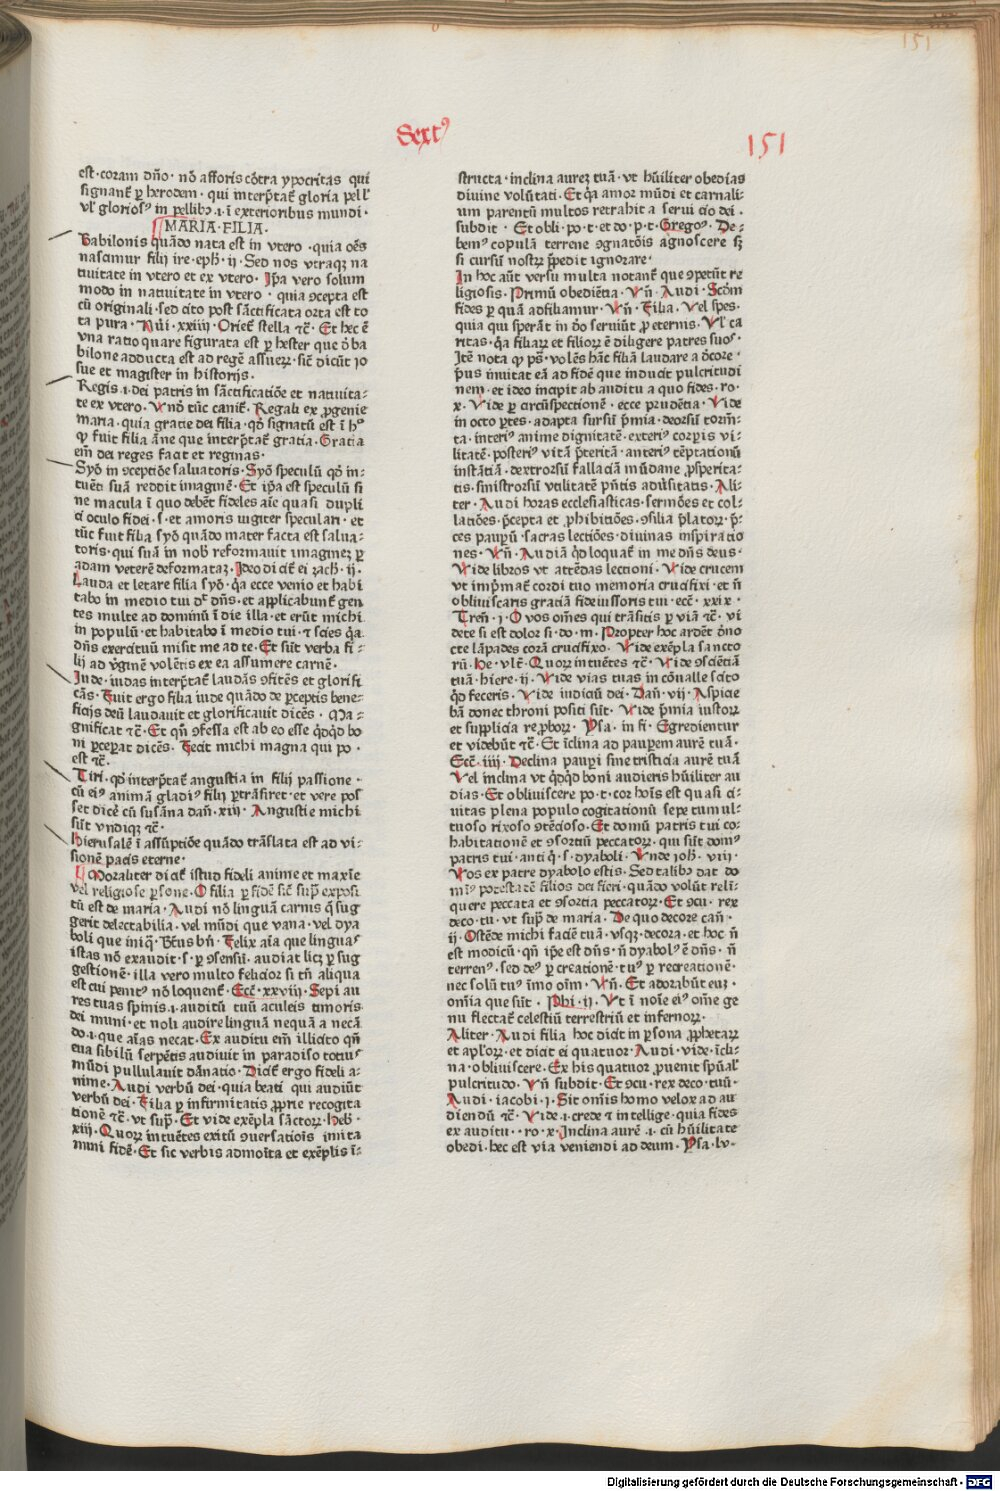 151
Sextꝰ
151
est·coram dño· nõ afforis cõtra ypocritas qui
signant̃ ꝑ herodem· qui interp̃tat̃ gloria pell'
vl' gloriosꝰ in pellibꝫ·i·ĩ exterioribus mundi·
MARIA·FILIA·
Babilonis quãdo nata est in vtero·quia oẽs
nascimur filij ire·eph̃·ij·Sed nos vtraqꝫ na
tiuitate in vtero et ex vtero· Ip̃a vero solum
modo in natiuitate in vtero· quia ꝯcepta est
cũ originali·sed cito post sãctificata orta est to
ta pura·Nũi·xxiiij·Oriet̃ stella tc̃·Et hec ẽ
vna ratio quare figurata est ꝑ hester que õ ba
bilone adducta est ad regẽ assuerꝝ·sic̃ dicũt io
sue et magister in historijs·
Regis·i·dei patris in sãctificatiõe et natiuita-
te ex vtero·Vnõ tũc canit̃·Regali ex ꝓgenie
maria·quia gratie dei filia·qõ signatũ est ĩ hꝰ
ꝙ fuit filia ãne que interp̃tat̃ gratia·Gratia
em̃ dei reges facit et reginas·
Syõ in ꝯceptiõe saluatoris·Syõ speculũ qõ in-
tuẽti suã reddit imaginẽ·Et ip̃a est speculũ si
ne macula ĩ quo debẽt fideles aĩe quasi dupli
ci oculo fidei·s·et amoris iugiter speculari·et
tũc fuit filia syõ quãdo mater facta est salua-
toris·qui suã in nob̃ reformauit imagineꝫ ꝑ
adam veterẽ deformataꝫ·Ideo dicit̃ ei zach̃·ij·
Lauda et letare filia syõ·q̃a ecce venio et habi
tabo in medio tui d̃t dñs·et applicabunt̃ gen
tes multe ad dominũ ĩ die illa·et erũt michi
in populũ·et habitabo ĩ medio tui·⁊ scies q̃a
dñs exercituũ misit me ad te·Et sũt verba fi-
lij ad v̓ginẽ volẽtis ex ea assumere carnẽ·
Iude·iudas interp̃tat̃ laudãs ꝯfitẽs et glorifi
cãs·Fuit ergo filia iude quãdo de ꝑceptis bene-
ficijs deũ laudauit et glorificauit dicẽs·Ma-
gnificat tc̃·Et qñ ꝯfessa est ab eo esse q̃dq̃d bo
ni ꝑceꝑat dicẽs·Fecit michi magna qui po·
est tc̃·
Tiri·qõ interp̃tat̃ angustia in filij passione·
cũ eiꝰ animã gladiꝰ filij ꝑtrãsiret·et vere pos
set dicẽ cũ susãna dañ·xiij·Angustie michi
sũt vndiqꝫ tc̃·
Hierusalẽ ĩ assũptiõe quãdo trãslata est ad vi-
sionẽ pacis eterne·
Moraliter dicit̃ istud fideli anime et maxĩe
vel religiose ꝑsone·O filia ꝑ fidẽ sic̃ sup̃ exposi
tũ est de maria·Audi nõ linguã carnis q̃ sug
gerit delectabilia·vel mũdi que vana·vel dya
boli que iniq̃·Bt̃us bñ·Felix aĩa que linguaˢ
istas nõ exaudit·s·ꝑ ꝯsensũ·audiat licꝫ ꝑ sug
gestionẽ·illa vero multo felicior si tñ aliqua
est cui penitꝰ nõ loquent̃·Ecc̃·xxviij·Sepi au
res tuas spinis·i·auditũ tuũ aculeis timoris
dei muni·et noli audire linguã nequã a necã
do·i·que aĩas necat·Ex auditu em̃ illicito qñ
eua sibilũ serpẽtis audiuit in paradiso totuˢ
mũdi pullulauit dãnatio·Dicit̃ ergo fideli a-
nime·Audi verbũ dei·quia beati qui audiũt
verbũ dei·Filia ꝑ infirmitatis ꝓprie recogita
tionẽ tc̃·vt sup̃·Et vide exẽpla sãctoꝝ·Heb̃·
xiij·Quoꝝ intuẽtes exitũ ꝯuersatiõis imita
mini fidẽ·Et sic verbis admoĩta et exẽplis ĩ-
structa·inclina aureꝫ tuã·vt hũiliter obedias
diuine volũtati·Et q̃a amor mũdi et carnali-
um parentũ multos retrahit a serui cio dei·
subdit· Et obli·po·t·et do·p·t·Gregoꝰ·De-
bemꝰ copulã terrene ꝯgnatõis agnoscere sꝫ
si cursũ nostꝝ p̃pedit ignorare·
In hoc aũt versu multa notant̃ que ꝯpetũt re
ligiosis·Primũ obediẽtia·Vñ·Audi·Scd̃m
fides ꝑ quã adfiliamur·Vñ·Filia·Vel spes·
quia qui sperãt in dõ seruiũt ꝓ eternis·Vl' ca
ritas·q̃a filiaꝝ et filioꝝ ẽ diligere patres suoˢ·
Itẽ nota ꝙ pˢ̃·volẽs hãc filiã laudare a dcore·
p̃us inuitat eã ad fidẽ que inducit pulcritudi
nem·et ideo incipit ab auditu a quo fides·ro·
x·Vide ꝑ circũspectionẽ·ecce prudẽtia·Vide
in octo ꝑtes·adapta sursũ p̃mia·deorsũ torm̃-
ta·interiꝰ anime dignitatẽ·exteriꝰ corꝑis vi-
litatẽ·posteriꝰ vitã p̃teritã·anteriꝰ tẽptationũ
instãtiã·dextrorsũ fallaciã mũdane ꝓsperita-
tis·sinistrorsũ vtilitatẽ p̃ntis adũsitatis·Ali-
ter·Audi horas ecclesiasticas·sermões et col-
latiões·p̃cepta et ꝓhibitiões·ꝯsilia p̃latoꝝ·p̃-
ces pauꝑũ·sacras lectiões·diuinas inspiratio
nes·Vñ·Audiã q̃d loquat̃ in me dñs deus·
Vide libros vt attẽdas lectioni·Vide crucem
vt imp̃mat̃ cordi tuo memoria crucifixi·et ñ
obliuiscaris gratiã fideiussoris tui·ecc̃·xxix·
Treñ·i·O vos om̃es qui trãsitis ꝑ viã tc̃·vi
dete si est dolor si·do·m·Propter hoc ardẽt õno
cte lãpades corã crucifixo·Vide exẽpla sancto
rũ·He·vlt̃·Quoꝝ intuẽtes tc̃·Vide ꝯsciẽtiã
tuã·hiere·ij·Vide vias tuas in cõualle scito
q̃d feceris·Vide iudiciũ dei·Dañ·vij·Aspicie
bã donec throni positi sũt·Vide p̃mia iustoꝝ
et supplicia reꝓboꝝ·Ysa·in fi·Egredientur
et videbũt tc̃·Et ĩclina ad pauꝑem aurẽ tuã·
Ecc̃·iiij·Declina pauꝑi sine tristicia aurẽ tuã
Vel inclina vt q̃dq̃d boni audieris hũiliter au
dias·Et obliuiscere po·t·cor hoĩs est quasi ci-
uitas plena populo cogitationũ sepe tumul-
tuoso rixoso ꝯtẽcioso·Et domũ patris tui co-
habitationẽ et ꝯsortiũ peccatoꝝ·qui sũt domꝰ
patris tui·anti q̃·s·dyaboli·Vnde ioh̃·viij·
Vos ex patre dyabolo estis·Sed talibꝫ dat do
miꝰ potestatẽ filios dei fieri·quãdo volũt reli-
quere peccata et ꝯsortia peccatoꝝ·Et ꝯcu·rex
deco·tu·vt sup̃ de maria·De quo decore cañ·
ij·Ostẽde michi faciẽ tuã·vsqꝫ·decora·et hoc ñ
est modicũ·qñ ip̃e est dñs·ñ dyabolꝰ ẽ dñs·ñ
terrenꝰ·sed deꝰ ꝑ creationẽ·tuꝰ ꝑ recreationẽ·
nec solũ tuꝰ ĩmo oĩm·Vñ·Et adorabũt euꝫ·
om̃ia que sũt·Phi·ij·Vt ĩ noĩe eiꝰ om̃e ge
nu flectat̃ celestiũ terrestriũ et infernoꝝ·
Aliter·Audi filia hoc dicit in ꝑsona ꝓphetaꝝ
et apl'oꝝ·et dicit ei quatuor·Audi·vide·ĩcli-
na·obliuiscere·Ex his quatuor ꝓuenit sp̃ual'
pulcritudo·Vñ subdit·Et ꝯcu·rex deco·tuũ·
Audi·iacobi·i·Sit om̃is homo velox ad au
diendũ tc̃·Vide·i·crede ⁊ intellige·quia fides
ex auditu··ro·x·Inclina aurẽ·i·cũ hũilitate
obedi·hec est via veniendi ad deum·Psa·lv-
Digitalisierung gefördert durch die Deutsche Forschungsgemeinschaft - DFG